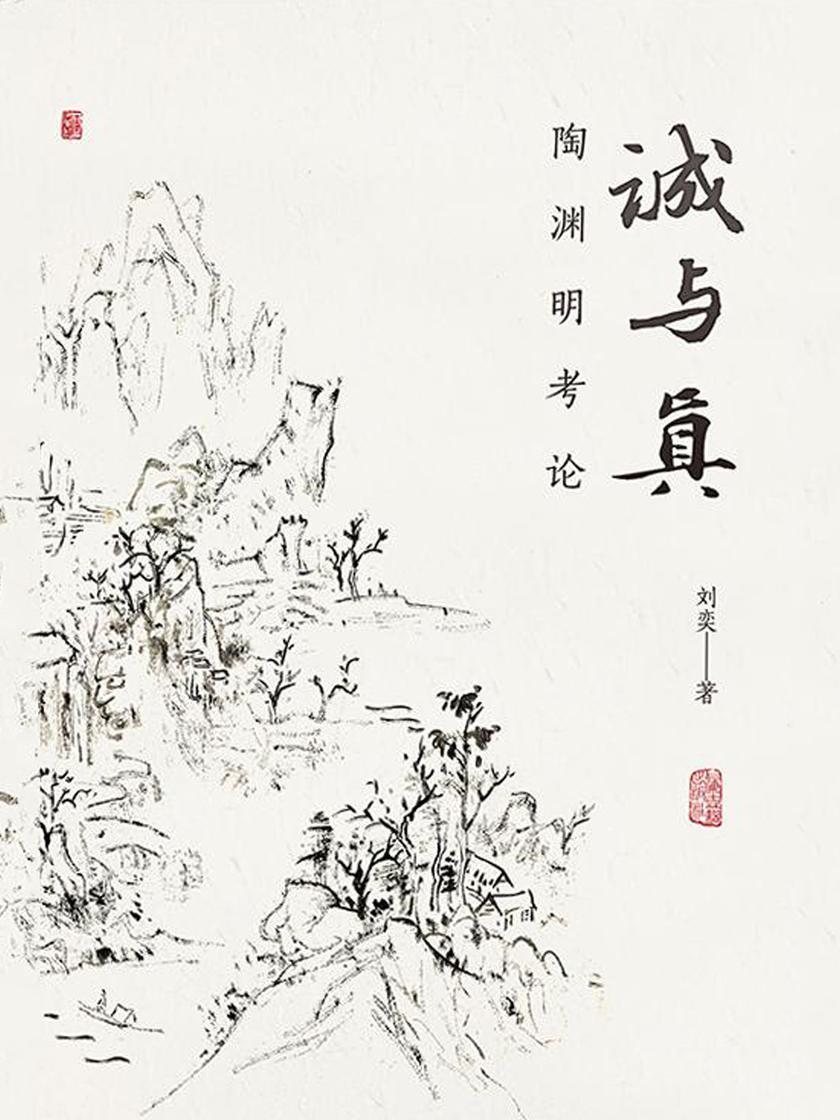 誠与真
陶渊明考论
刘奕——著